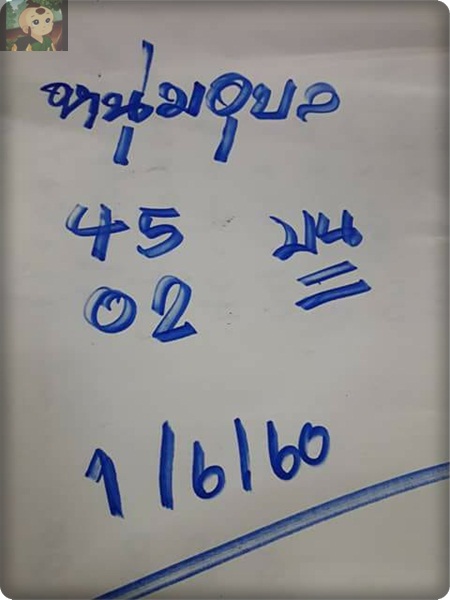 หนุ่มอุบล
45 บน
02
1/6/60